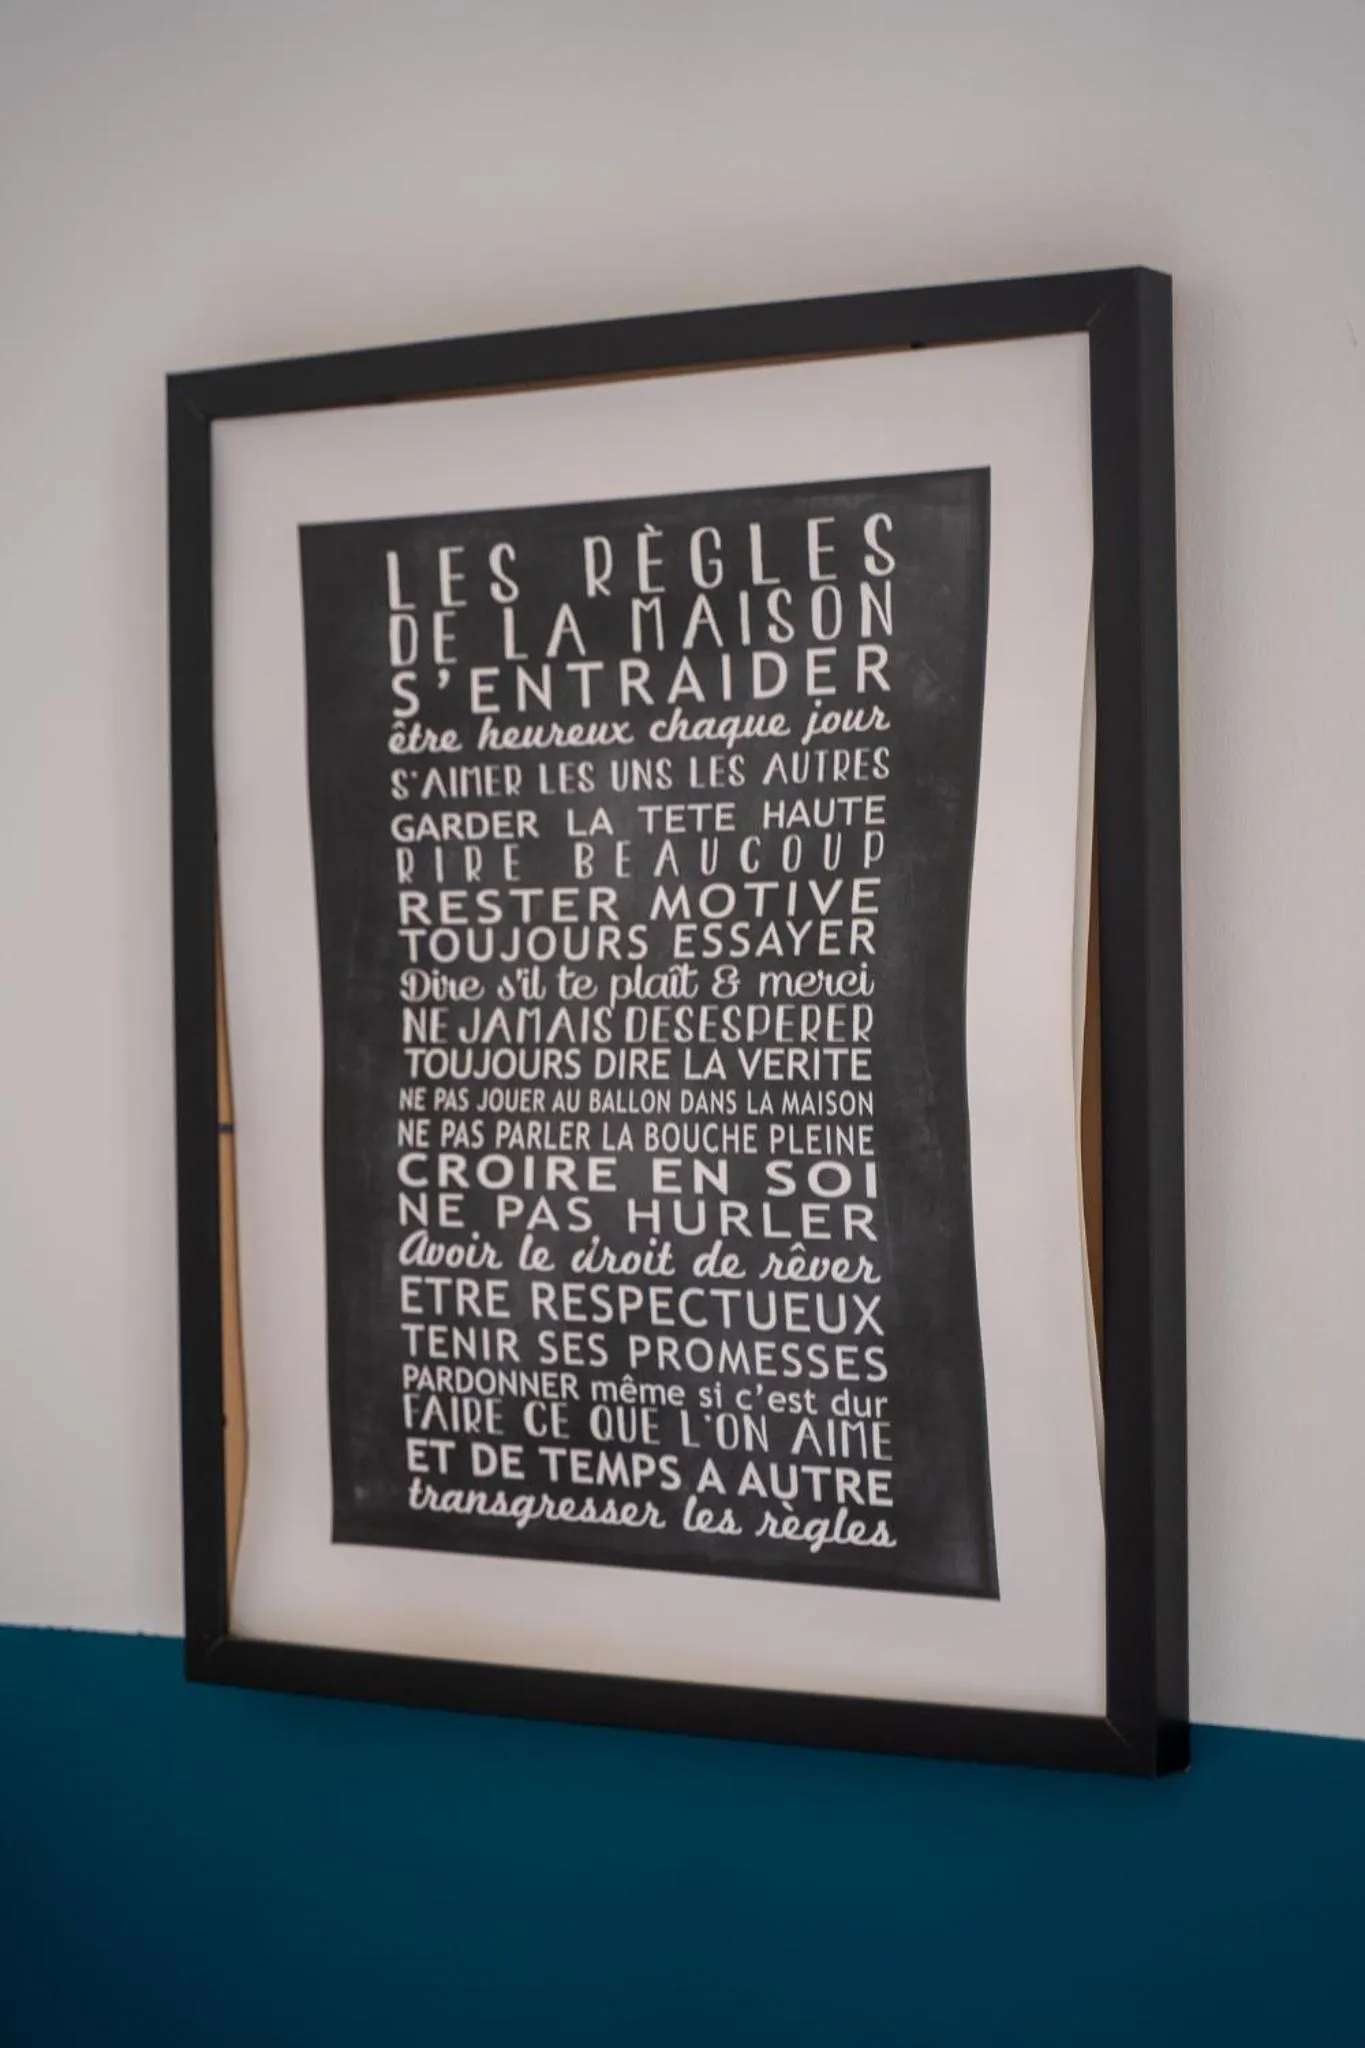 LES RÈGLES
DE LA MAISON
S'ENTRAIDER
être heureux chaque jour
S'AIMER LES UNS LES AUTRES
GARDER LA TETE HAUTE
RIRE BEAUCOUP
RESTER MOTIVE
TOUJOURS ESSAYER
Dire s'il te plaît & merci
NE JAMAIS DESESPERER
TOUJOURS DIRE LA VERITE
NE PAS JOUER AU BALLON DANS LA MAISON
NE PAS PARLER LA BOUCHE PLEINE
CROIRE EN SOI
NE PAS HURLER
Avoir le droit de rêver
ETRE RESPECTUEUX
TENIR SES PROMESSES
PARDONNER même si c'est dur
FAIRE CE QUE L'ON AIME
ET DE TEMPS A AUTRE
transgresser les règles